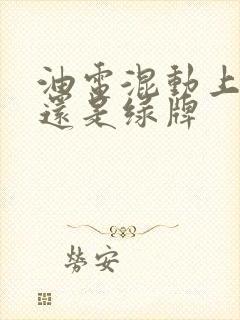 油電混動上
還是绿牌
勞安